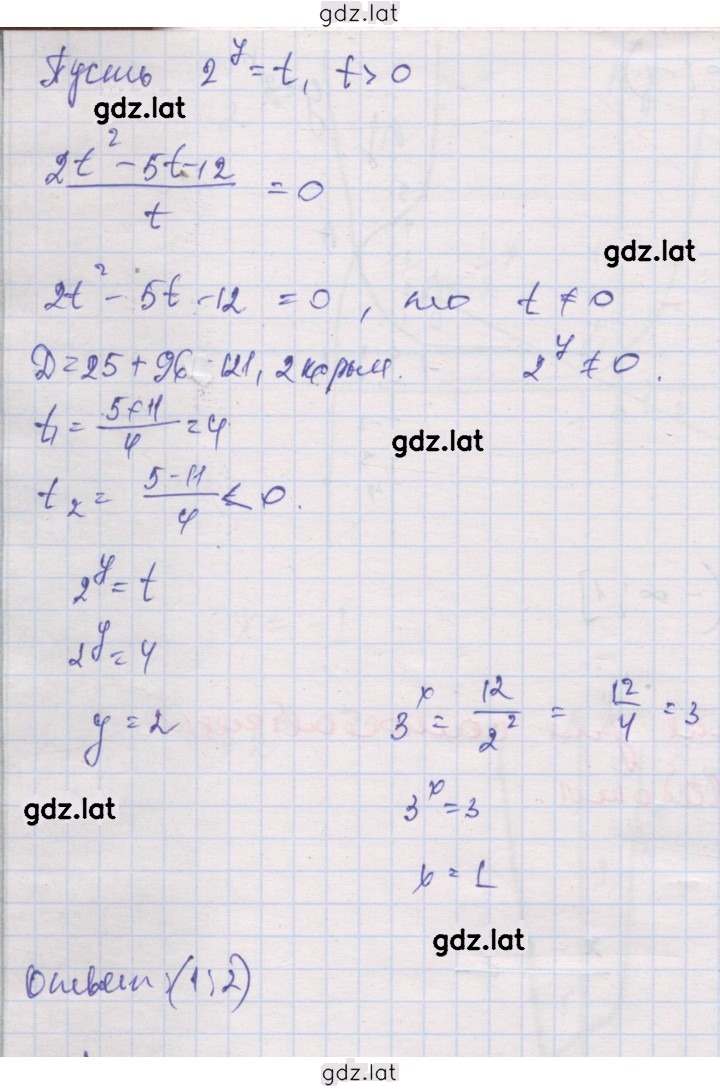 gdz.lat
Пусть 2^y = t, t > 0
gdz.lat
(2t^2 - 5t - 12)/t = 0
gdz.lat
2t^2 - 5t - 12 = 0, т t ≠ 0
D = 25 + 96 = 121, 2 корня. 2^y ≠ 0.
t1 = (5+11)/4 = 4
gdz.lat
t2 = (5-11)/4 < 0.
2^y = t
2^y = 4
y = 2
3^x = 12/2^2 = 12/4 = 3
gdz.lat
3^x = 3
x = 1
gdz.lat
Ответ: (1; 2)
gdz.lat